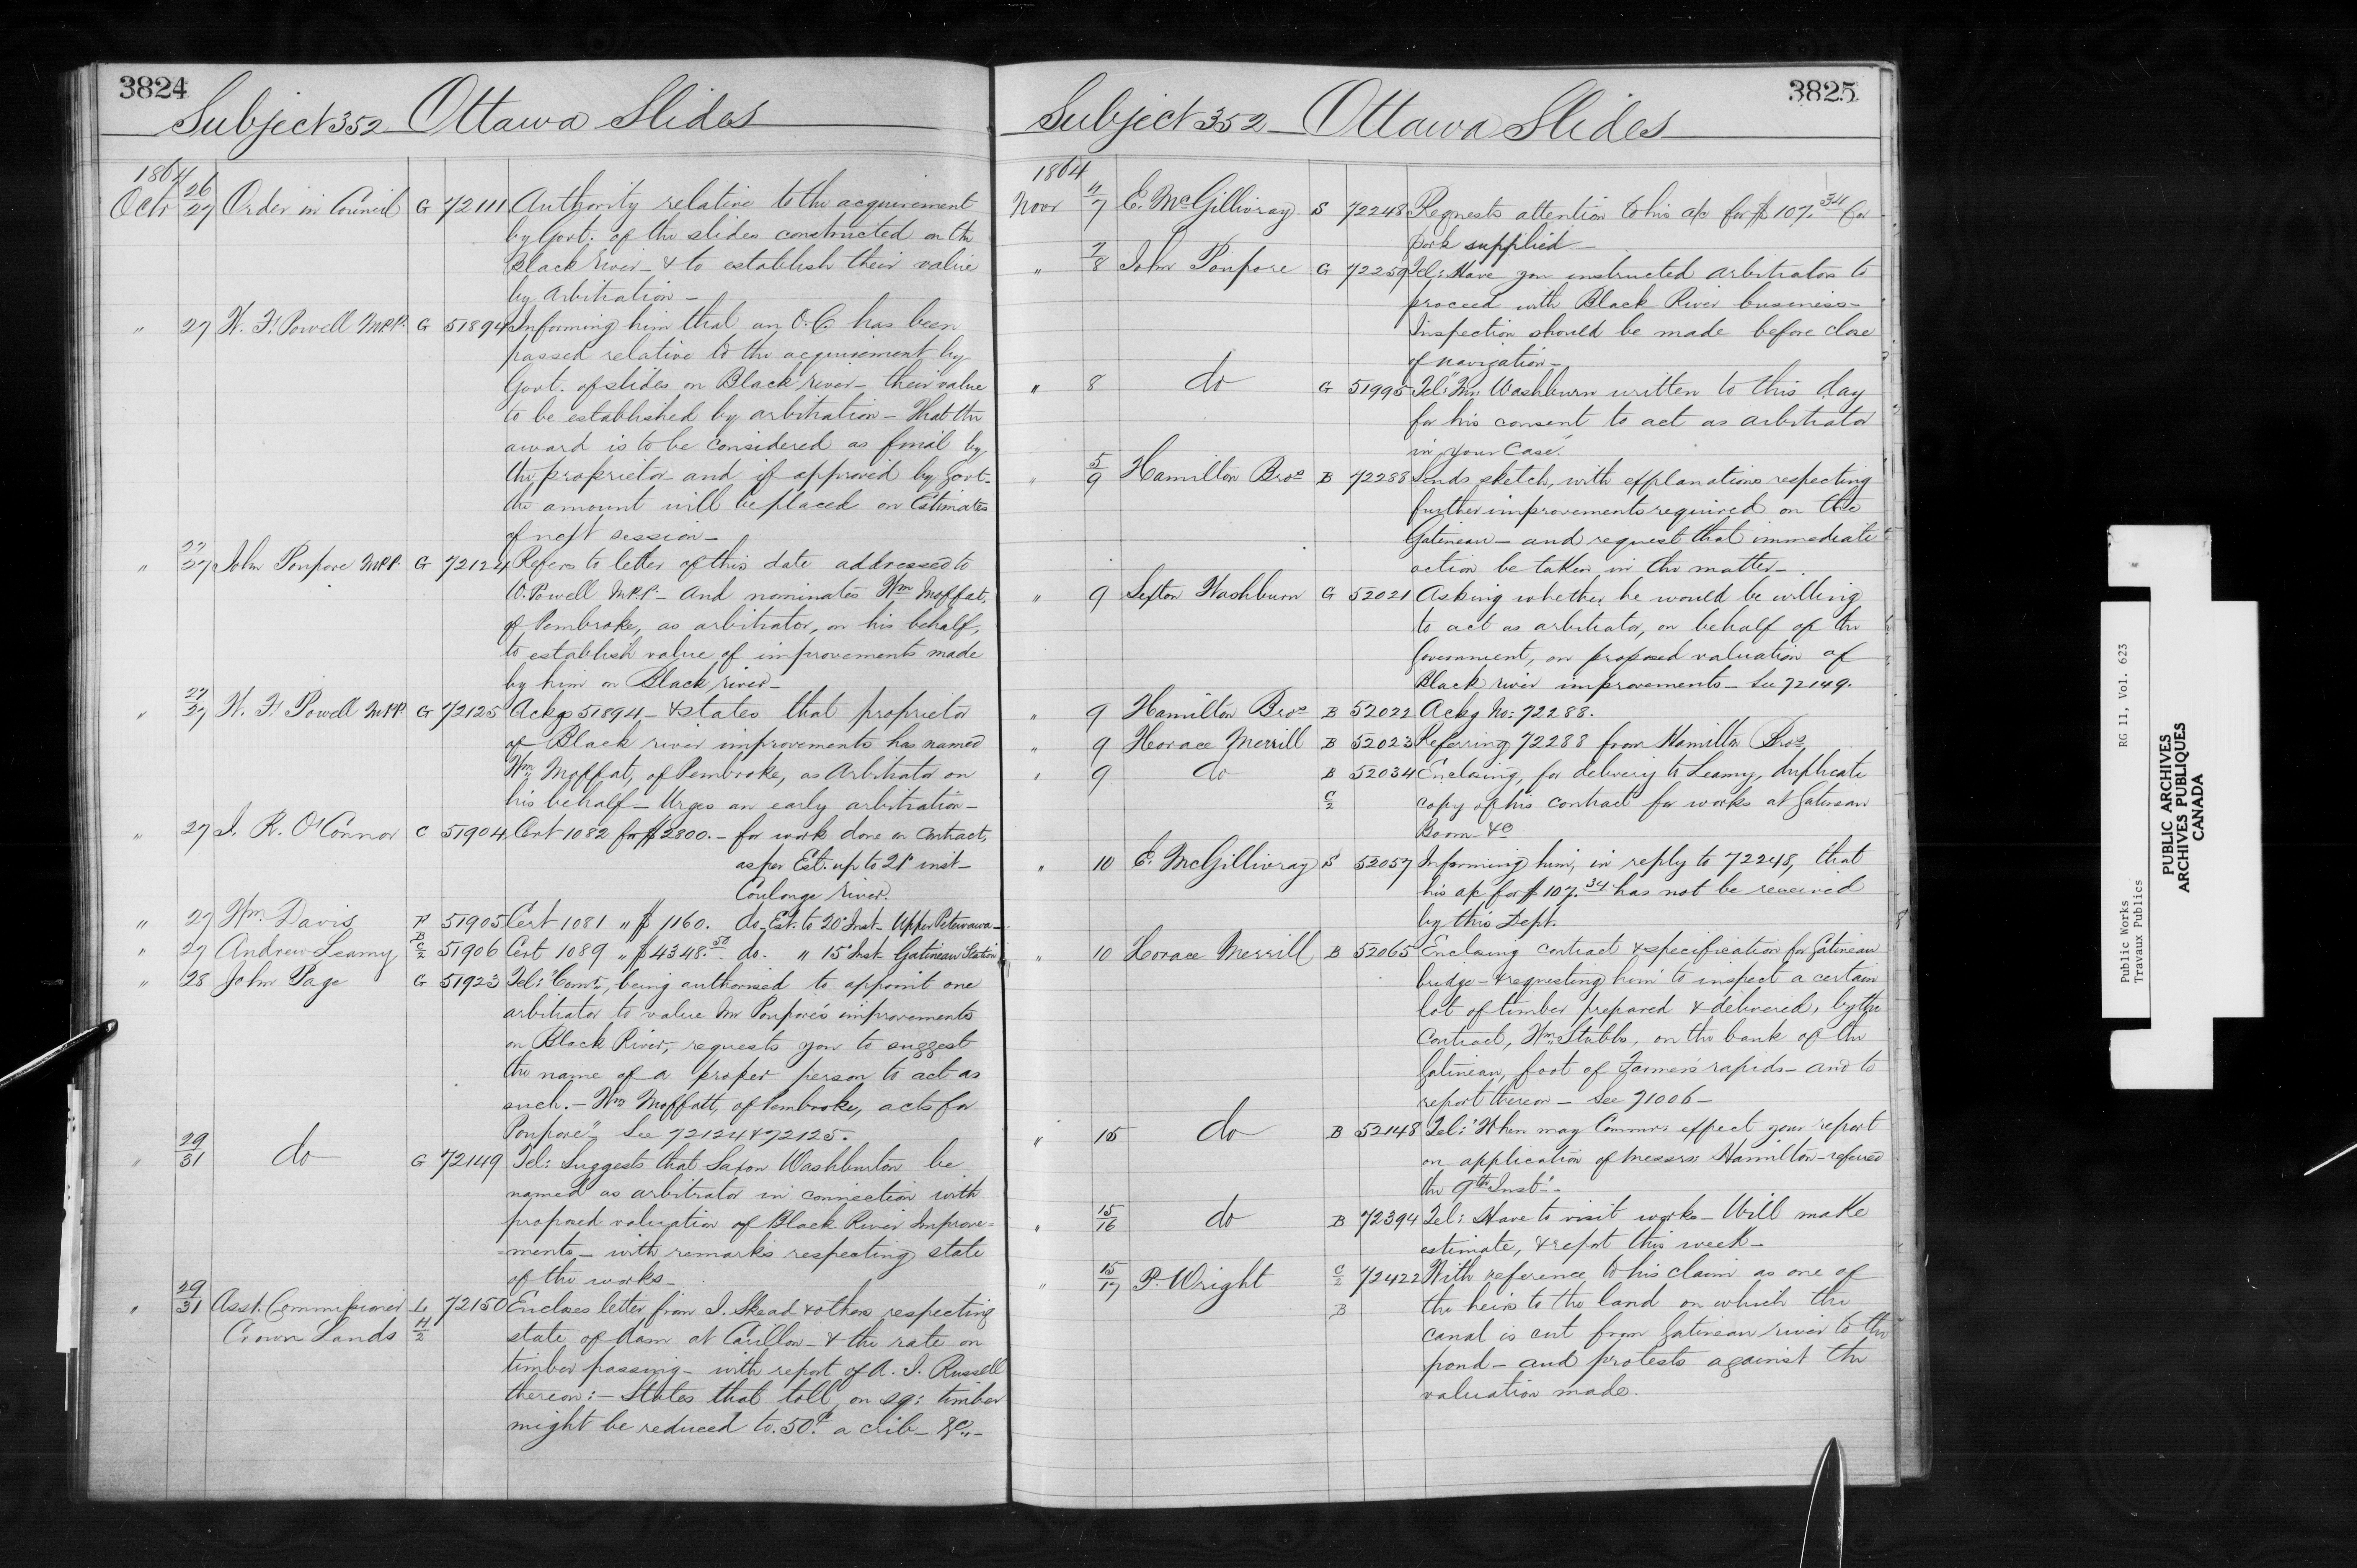 3824
Subject 352 Ottawa Slides
1864
Octr 26/27 Order in Council G 72111 Authority relative to the acquirement
by Govt. of the slides constructed on the
Black River - & to establish their value
by Arbitration -
" 27 W. F. Powell M.P.P. G 51894 Informing him that an O.C. has been
passed relative to the acquirement by
Govt. of slides on Black river - their value
to be established by arbitration - That the
award is to be considered as final by
the proprietor and if approved by Govt.
the amount will be placed on Estimates
of next session -
" 27/27 John Poupore M.P.P. G 72124 Refers to letter of this date addressed to
W. Powell M.P.P. - and nominates Wm Moffat,
of Pembroke, as arbitrator, on his behalf,
to establish value of improvements made
by him on Black river -
" 27/27 W. F. Powell M.P.P. G 72125 Ackgs 51894 - & states that proprietor
of Black river improvements has named
Wm Moffat, of Pembroke, as Arbitrator on
his behalf - Urges an early arbitration -
" 27 J. R. O'Connor C 51904 Cert 1082 for $2800. - for work done on contract,
as per Est. up to 21st inst -
Coulonge River.
" 27 Wm. Davis P 51905 Cert 1081 " $ 1160. do. Est. to 20th Inst - Upper Petewawa -
" 27 Andrew Leamy B C/2 51906 Cert 1089 " $4348.50 do. " 15th Inst. Gatineau Station
" 28 John Page G 51923 Tel: "Comr., being authorised to appoint one
arbitrator to value Mr Poupore's improvements
on Black River, requests you to suggest
the name of a proper person to act as
such. - Wm Moffatt, of Pembroke, acts for
Poupore" - See 72124 & 72125.
" 29/31 do G 72149 Tel: Suggests that Saxon Washburton be
named as arbitrator in connection with
proposed valuation of Black River Improve=
=ments - with remarks respecting state
of the works -
" 29/31 Asst. Commissioner L 72150 Encloses letter from J. Skead & others respecting
Crown Lands H/2 state of dam at Carillon - & the rate on
timber passing - with report of A. J. Russell
thereon: - States that toll, on sq: timber
might be reduced to 50c. a crib - &c. -
3825
Subject 352 - Ottawa Slides
1864
Novr 4/7 E. McGillivray S 72248 Requests attention to his a/c for $107.34 for
pork supplied -
" 7/8 John Poupore G 72259 Tel: Have you instructed arbitrators to
proceed with Black River business -
Inspection should be made before close
of navigation -
" 8 do G 51995 Tel: "Mr. Washburn written to this day
for his consent to act as arbitrator
in your case."
" 5/9 Hamilton Bros B 72288 Sends sketch, with explanations respecting
further improvements required on the
Gatineau - and request that immediate
action be taken in the matter -
" 9 Sexton Washburn G 52021 Asking whether he would be willing
to act as arbitrator, on behalf of the
Government, on proposed valuation of
Black river improvements - See 72149.
" 9 Hamilton Bros B 52022 Ackg No: 72288.
" 9 Horace Merrill B 52023 Referring 72288 from Hamilton Bros
" 9 do B 52034 Enclosing, for delivery to Leamy, duplicate
C/2 copy of his contract for works at Gatineau
Boom &c
" 10 E. McGillivray S 52057 Informing him, in reply to 72248, that
his a/c for $107.34 has not be received
by this Dept.
" 10 Horace Merrill B 52065 Enclosing contract & specification for Gatineau
bridge - & requesting him to inspect a certain
lot of timber prepared & delivered, by the
Contract, Wm. Stubbs, on the bank of the
Gatineau, foot of Farmers rapids - and to
report thereon - See 71006 -
" 15 do B 52148 Tel: "When may Commr: expect your report
on application of Messrs: Hamilton - referred
the 9th Inst". -
" 15/16 do B 72394 Tel: Have to visit works - Will make
estimate, & report this week -
" 15/17 P. Wright C/2 72422 With reference to his claim as one of
B the heirs to the land on which the
canal is cut from Gatineau river to the
pond - and protests against the
valuation made.
Public Works RG 11, Vol. 623
Travaux Publics
PUBLIC ARCHIVES
ARCHIVES PUBLIQUES
CANADA